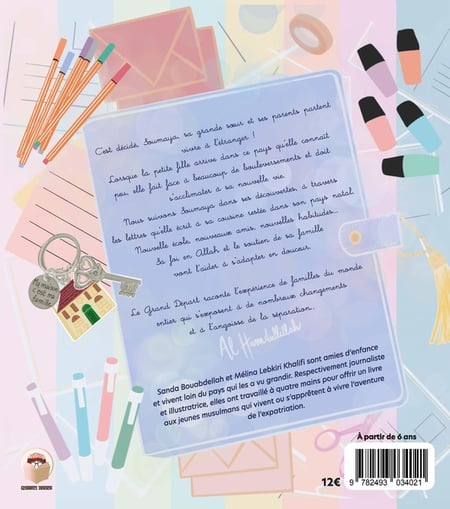 C'est décidé, Soumaja, sa grande sœur et ses parents partent
vivre à l'étranger !
Lorsque la petite fille arrive dans ce pays qu'elle connaît
peu, elle fait face à beaucoup de bouleversements et doit
s'acclimater à sa nouvelle vie.
Nous suivons Soumaja dans ses découvertes, à travers
les lettres qu'elle écrit à sa cousine restée dans son pays natal.
Nouvelle école, nouveaux amis, nouvelles habitudes...
Sa foi en Allah et le soutien de sa famille
vont l'aider à s'adapter en douceur.
Le Grand Départ raconte l'expérience de familles du monde
entier qui s'exposent à de nombreux changements
et à l'angoisse de la séparation...
Al Hamdulillah
Sanda Bouabdellah et Mélina Lebkiri Khalifi sont amies d'enfance
et vivent loin du pays qui les a vu grandir. Respectivement journaliste
et illustratrice, elles ont travaillé à quatre mains pour offrir un livre
aux jeunes musulmans qui vivent ou s'apprêtent à vivre l'aventure
de l'expatriation.
À partir de 6 ans
12€
9 782493 034021